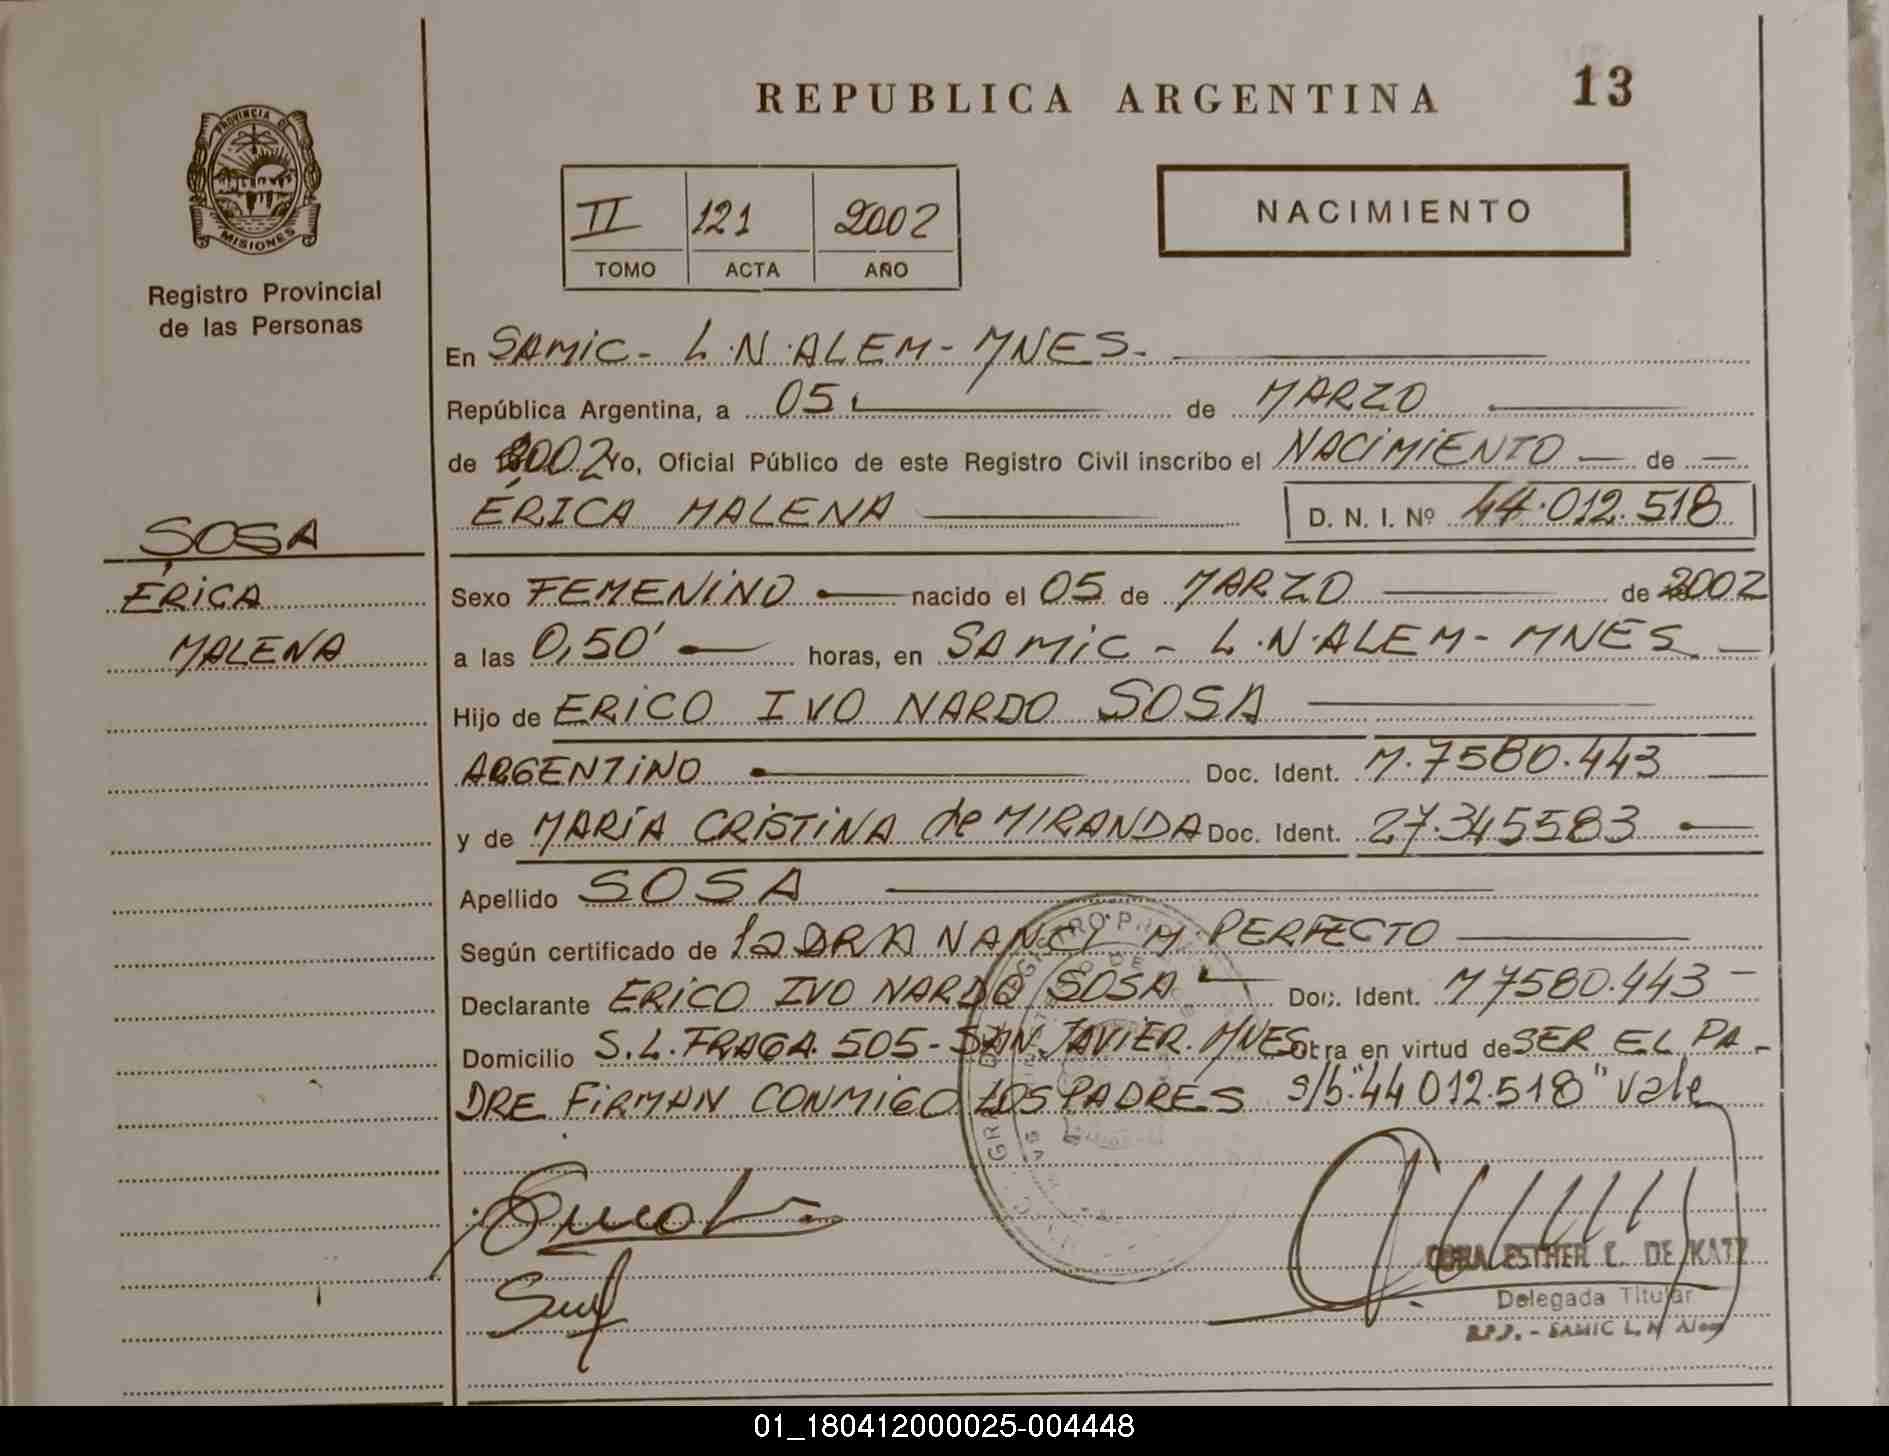 REPUBLICA ARGENTINA 13
PROVINCIA DE
MISIONES
Registro Provincial
de las Personas
II 121 2002
TOMO ACTA AÑO
NACIMIENTO
En SAMIC - L.N.ALEM - MNES -
República Argentina, a 05 de MARZO
de 2002 Yo, Oficial Público de este Registro Civil inscribo el NACIMIENTO de
ÉRICA MALENA D. N. I. Nº 44.012.518
SOSA
ÉRICA
MALENA
Sexo FEMENINO nacido el 05 de MARZO de 2002
a las 0,50' horas, en SAMIC - L.N.ALEM - MNES
Hijo de ERICO IVO NARDO SOSA
ARGENTINO Doc. Ident. M.7580.443
y de MARÍA CRISTINA de MIRANDA Doc. Ident. 27.345583
Apellido SOSA
Según certificado de la DRA NANCY M PERFECTO
Declarante ERICO IVO NARDO SOSA Doc. Ident. M7580.443 -
Domicilio S.L.FRAGA 505 - SAN JAVIER. MNES Obra en virtud de SER EL PA-
DRE FIRMAN CONMIGO LOS PADRES s/b "44 012.518" vale
ESTHER C. DE KATZ
Delegada Titular
R.P.P. - SAMIC L.N Alem
01_180412000025-004448